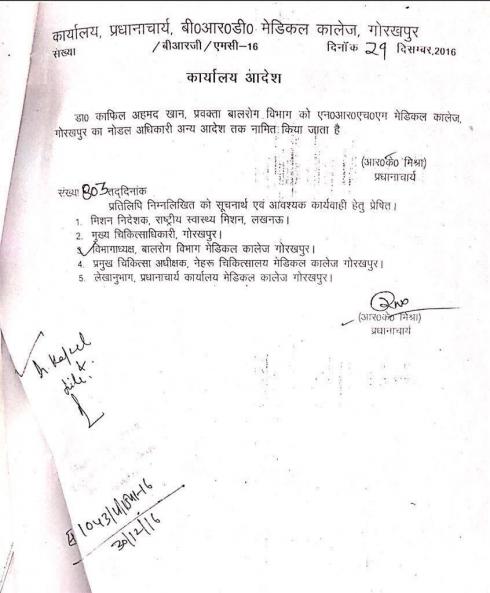 कार्यालय, प्रधानाचार्य, बी0आर0डी0 मेडिकल कालेज, गोरखपुर
संख्या /बीआरजी/एमसी-16 दिनॉक 29 दिसम्बर,2016
कार्यालय आदेश
डा0 काफिल अहमद खान, प्रवक्ता बालरोग विभाग को एन0आर0एच0एम मेडिकल कालेज,
गोरखपुर का नोडल अधिकारी अन्य आदेश तक नामित किया जाता है
(आर0के0 मिश्रा)
प्रधानाचार्य
संख्या 803 तद्दिनांक
प्रतिलिपि निम्नलिखित को सूचनार्थ एवं आवश्यक कार्यवाही हेतु प्रेषित।
1. मिशन निदेशक, राष्ट्रीय स्वास्थ्य मिशन, लखनऊ।
2. मुख्य चिकित्साधिकारी, गोरखपुर।
3. विभागाध्यक्ष, बालरोग विभाग मेडिकल कालेज गोरखपुर।
4. प्रमुख चिकित्सा अधीक्षक, नेहरू चिकित्सालय मेडिकल कालेज गोरखपुर।
5. लेखानुभाग, प्रधानाचार्य कार्यालय मेडिकल कालेज गोरखपुर।
(आर0के0 मिश्रा)
प्रधानाचार्य
30/12/16